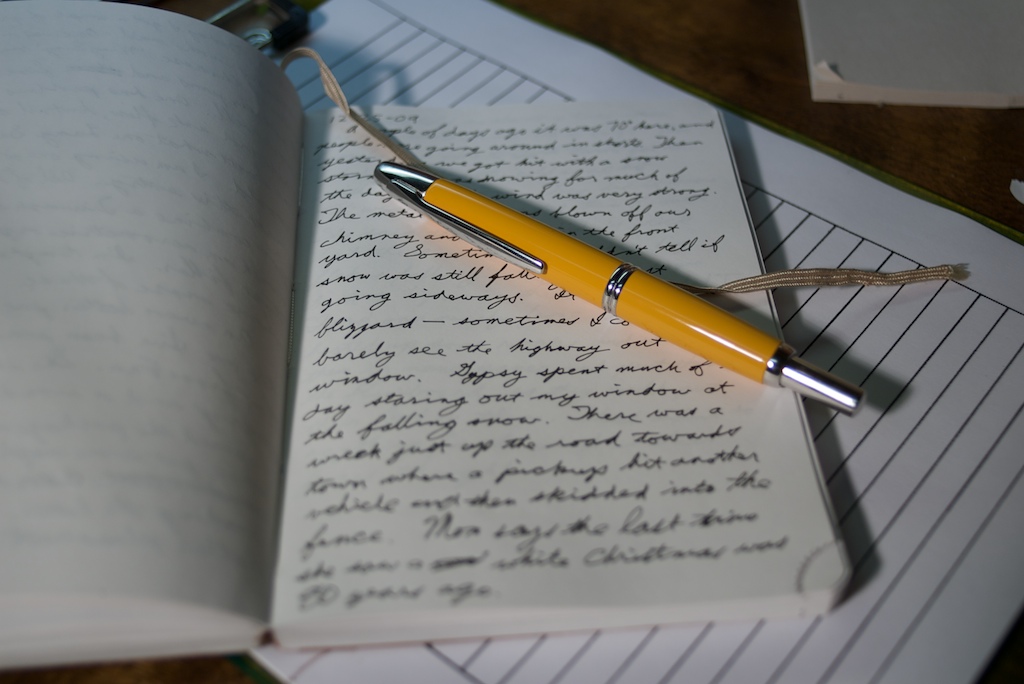 -09
a couple of days ago it was 75 here, and
people going around in shorts. Then
we got hit with a snow
snowing for much of
the day wind was very strong.
The metal blown off our
chimney and in the front
yard. Sometimes tell if
snow was still fall
going sideways.
blizzard — sometimes I co
barely see the highway out
window. Gypsy spent much of
day staring out my window at
the falling snow. There was a
wreck just up the road towards
town where a pickup hit another
vehicle and then skidded into the
fence. Mom says the last time
she saw a white Christmas was
50 years ago.